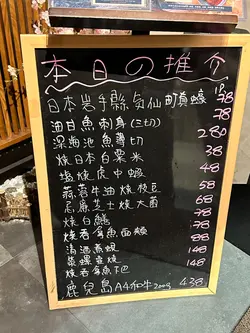 本日の推介
日本岩手縣気仙町廣蠔 1P 78
油甘魚刺身(三切) 78
深海池魚壽切 280
燒日本白粟米 38
塩燒虎中蝦 48
蒜蓉牛油燒枝豆 58
忌廉芝士燒大菌 68
燒白鱔 78
燒吞拿魚面頰 78
清酒煮蜆 88
蒸螺燒 148
燒吞拿魚下巴 148
鹿兒島A4和牛200g 438